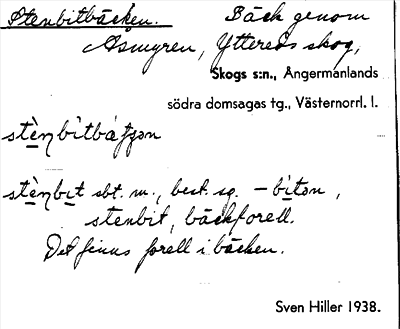 Stenbitbäcken. Bäck genom
Åsmyren, Yttereds skog,
Skogs s:n., Ångermanlands
södra domsagas tg., Västernorrl. l.
stenbit sbt. m., best. sg. - bitən,
stenbit, bäckforell.
Det finns forell i bäcken.
Sven Hiller 1938.